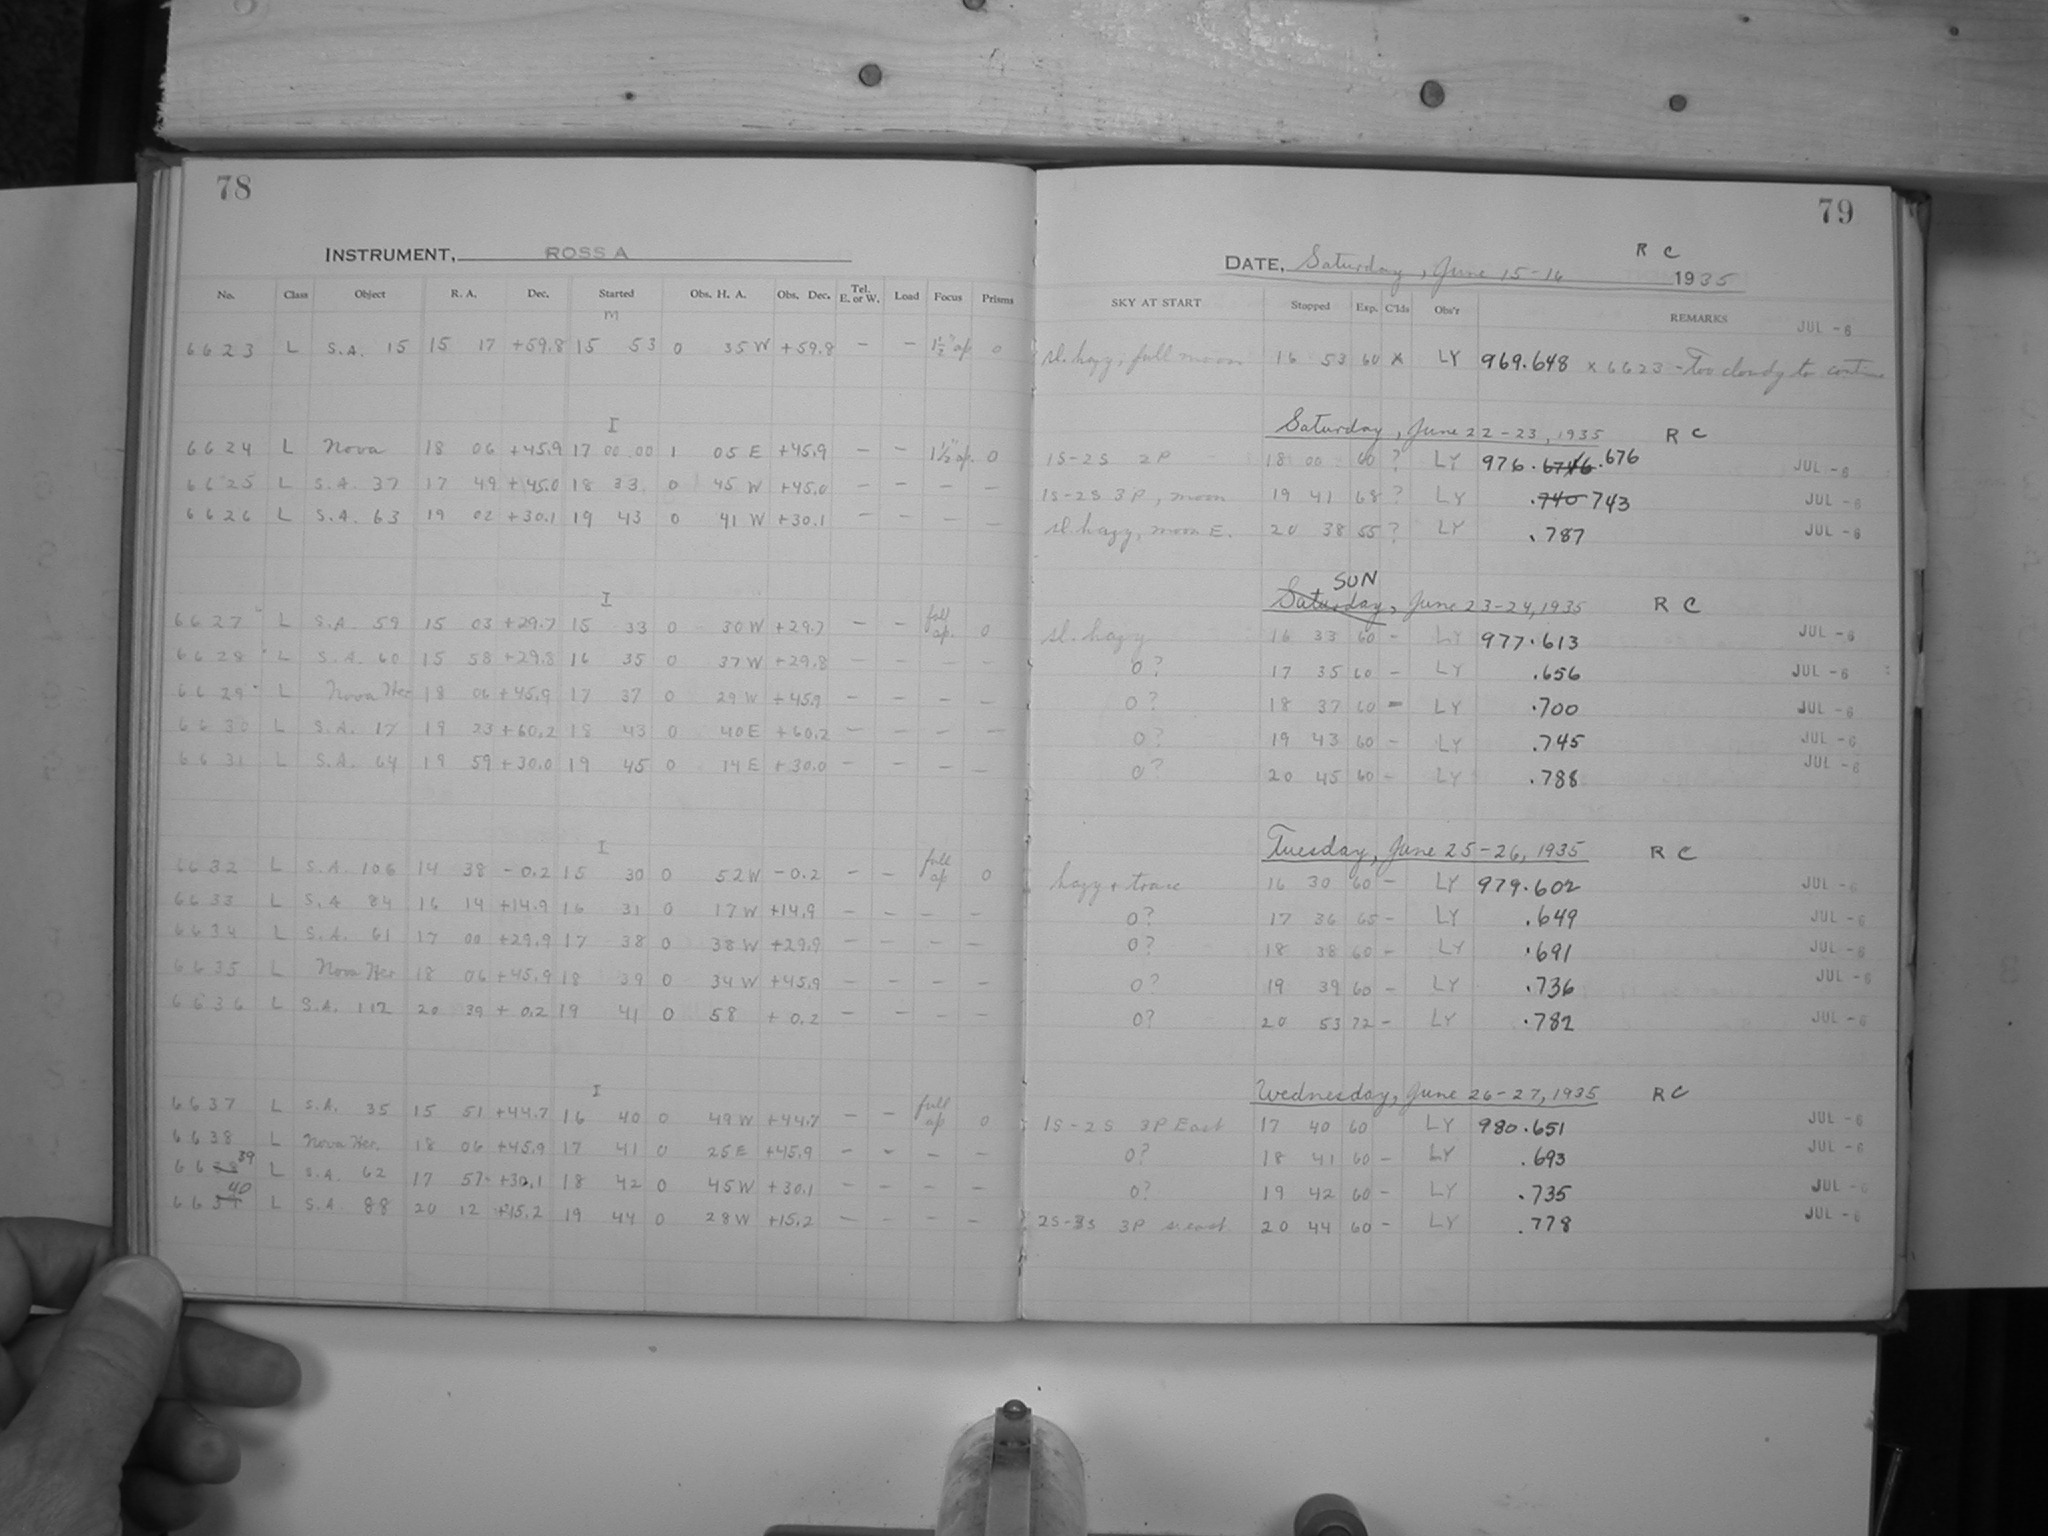 78
79
INSTRUMENT, ROSS A
R C
DATE, Saturday, June 15-16 1935
No. Class Object R. A. Dec. Started Obs. H. A. Obs. Dec. Tel. E. or W. Load Focus Prisms SKY AT START Stopped Exp. C'lds Obs'r REMARKS
M
JUL -6
6623 L S.A. 15 15 17 +59.8 15 53 0 35 W +59.8 — — 1½" ap 0 sl. hazy, full moon 16 53 60 x LY 969.648 x 6623 - Too cloudy to continue
I
Saturday, June 22-23, 1935 R C
6624 L Nova 18 06 +45.9 17 00 00 1 05 E +45.9 — — 1½" ap. 0 1S-2S 2P 18 00 60 ? LY 976. .676 JUL -6
6625 L S.A. 37 17 49 +45.0 18 33 0 45 W +45.0 — — — — 1S-2S 3P, moon 19 41 68 ? LY .740 743 JUL -6
6626 L S.A. 63 19 02 +30.1 19 43 0 41 W +30.1 — — — — sl. hazy, moon E. 20 38 55 ? LY .787 JUL -6
SUN
I
Saturday, June 23-24, 1935 R C
6627 L S.A. 59 15 03 +29.7 15 33 0 30 W +29.7 — — full ap. 0 sl. hazy 16 33 60 - LY 977.613 JUL -6
6628 L S.A. 60 15 58 +29.8 16 35 0 37 W +29.8 — — — — 0? 17 35 60 - LY .656 JUL -6
6629 L Nova Her 18 06 +45.9 17 37 0 29 W +45.9 — — — — 0? 18 37 60 - LY .700 JUL -6
6630 L S.A. 17 19 23 +60.2 18 43 0 40 E +60.2 — — — — 0? 19 43 60 - LY .745 JUL -6
6631 L S.A. 64 19 59 +30.0 19 45 0 14 E +30.0 — — — — 0? 20 45 60 - LY .788 JUL -6
I
Tuesday, June 25-26, 1935 R C
6632 L S.A. 106 14 38 -0.2 15 30 0 52 W -0.2 — — full ap 0 hazy + 16 30 60 - LY 979.602 JUL -6
6633 L S.A. 84 16 14 +14.9 16 31 0 17 W +14.9 — — — — 0? 17 36 65 - LY .649 JUL -6
6634 L S.A. 61 17 00 +29.9 17 38 0 38 W +29.9 — — — — 0? 18 38 60 - LY .691 JUL -6
6635 L Nova Her 18 06 +45.9 18 39 0 34 W +45.9 — — — — 0? 19 39 60 - LY .736 JUL -6
6636 L S.A. 112 20 39 +0.2 19 41 0 58 +0.2 — — — — 0? 20 53 72 - LY .782 JUL -6
I
Wednesday, June 26-27, 1935 R C
6637 L S.A. 35 15 51 +44.7 16 40 0 49 W +44.7 — — full ap 0 1S-2S 3P East 17 40 60 LY 980.651 JUL -6
6638 L Nova Her. 18 06 +45.9 17 41 0 25 E +45.9 — — — — 0? 18 41 60 - LY .693 JUL -6
6638 39 L S.A. 62 17 57 +30.1 18 42 0 45 W +30.1 — — — — 0? 19 42 60 - LY .735 JUL -6
6639 40 L S.A. 88 20 12 +15.2 19 44 0 28 W +15.2 — — — — 2S-3S 3P s. east 20 44 60 - LY .778 JUL -6